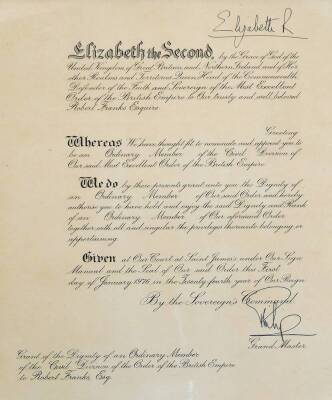 Elizabeth R
Elizabeth the Second, by the Grace of God of the
United Kingdom of Great Britain and Northern Ireland and of Her
other Realms and Territories Queen Head of the Commonwealth,
Defender of the Faith and Sovereign of the Most Excellent
Order of the British Empire to Our trusty and well beloved
Robert Franks Esquire
Greeting
Whereas We have thought fit to nominate and appoint you to
be an Ordinary Member of the Civil Division of
Our said Most Excellent Order of the British Empire
We do by these presents grant unto you the Dignity of
an Ordinary Member of Our said Order and hereby
authorise you to have hold and enjoy the said Dignity and Rank
of an Ordinary Member of Our aforesaid Order
together with all and singular the privileges thereunto belonging or
appertaining.
Given at Our Court at Saint James's under Our Sign
Manual and the Seal of Our said Order this First
day of January 1976 in the Twenty-fourth year of Our Reign.
By the Sovereign's Command.
Philip
Grand Master
Grant of the Dignity of an Ordinary Member
of the Civil Division of the Order of the British Empire
to Robert Franks, Esq.